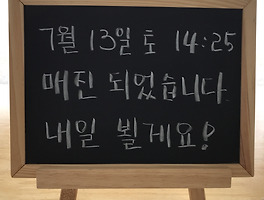 7월 13일 토 14:25
매진 되었습니다.
내일 뵐게요!